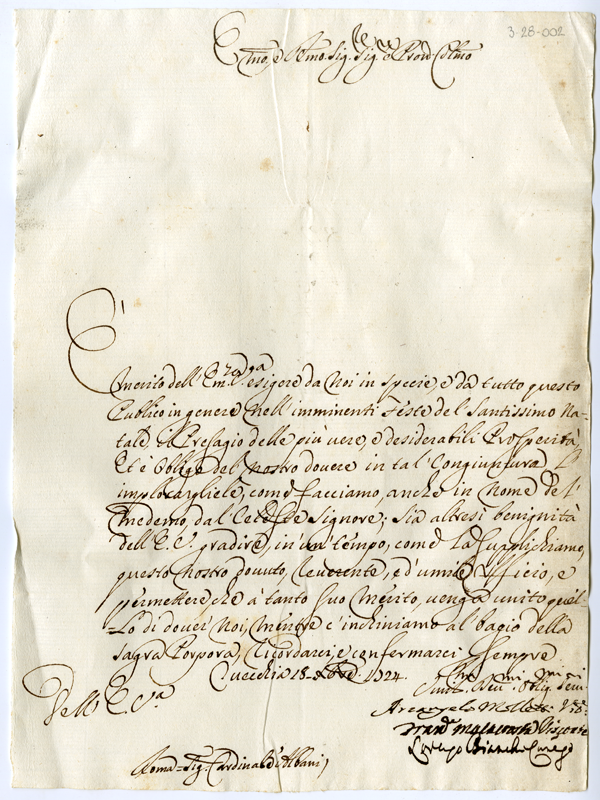 3-28-002
Emo, e Rmo Sig. Sig. e Pron Colmo
È
merito dell' Em.za V.ra esigere da Noi in specie, e da tutto questo
Publico in genere nell' imminenti Feste del Santissimo Na-
tale il Presagio delle più vere, e desiderabili Prosperità,
Et è obligo del nostro dovere in tal' Congiuntura
implorargliele, come facciamo, anche in Nome del'
medemo, dal Celeste Signore; Sia altresì benignità
dell' E. V. gradire, in un' tempo, come La Supplichiamo,
questo nostro dovuto, reverente, ed' umile ufficio, e
permettere che à tanto suo Merito, venga unito quel-
Lo di dover' Noi, Mentre c' inchiniamo al bagio della
Sagra Porpora, ricordarci, e confermarci Sempre
18 1724
Dell' E. V.ra
Arcangelo
Lorenzo Bianchi
Roma = Sig. Cardinale Albani